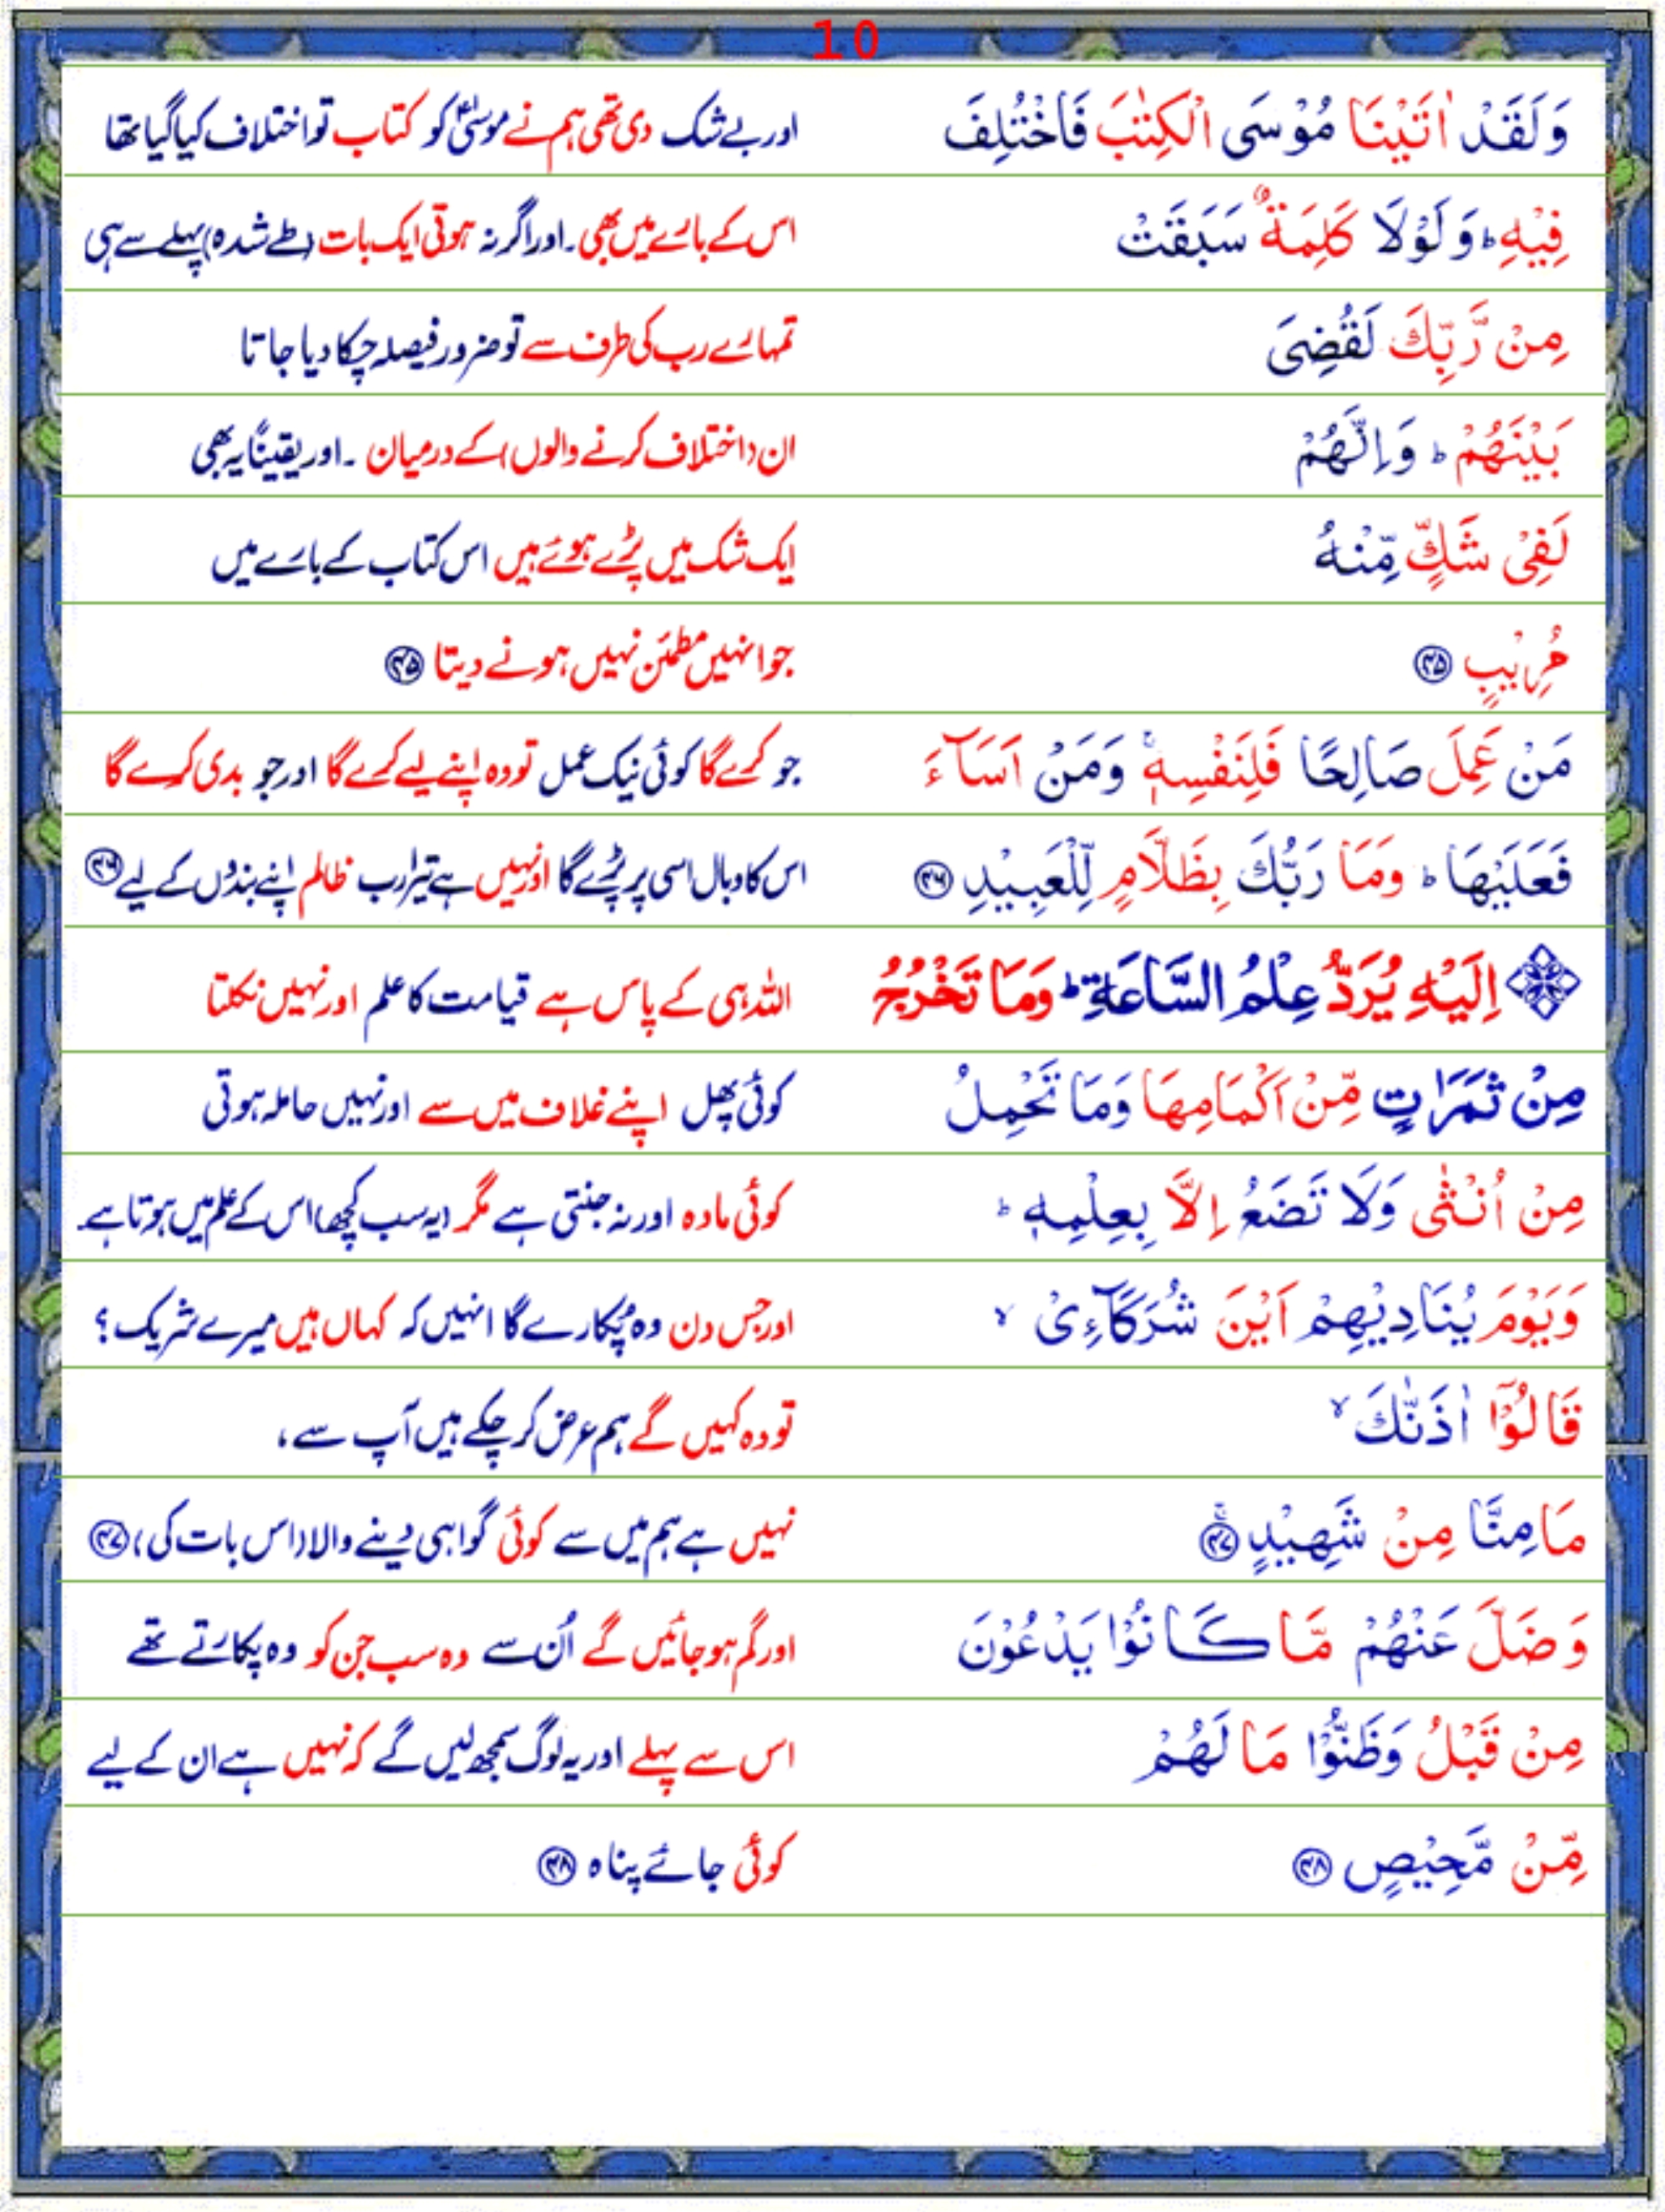 10
وَلَقَدْ اٰتَيْنَا مُوْسَى الْكِتٰبَ فَاخْتُلِفَ اور بے شک دی تھی ہم نے موسیٰؑ کو کتاب تو اختلاف کیا گیا تھا
فِيْهِ ؕ وَلَوْلَا كَلِمَةٌ سَبَقَتْ اس کے بارے میں بھی۔ اور اگر نہ ہوتی ایک بات (طے شدہ) پہلے سے ہی
مِنْ رَّبِّكَ لَقُضِىَ تمہارے رب کی طرف سے تو ضرور فیصلہ چکا دیا جاتا
بَيْنَهُمْ ؕ وَاِنَّهُمْ ان (اختلاف کرنے والوں) کے درمیان ۔ اور یقیناً یہ بھی
لَفِىْ شَكٍّ مِّنْهُ ایک شک میں پڑے ہوئے ہیں اس کتاب کے بارے میں
مُرِيْبٍ ﴿۴۵﴾ جو انہیں مطمئن نہیں ہونے دیتا ﴿۴۵﴾
مَنْ عَمِلَ صَالِحًا فَلِنَفْسِهٖ ۚ وَمَنْ اَسَآءَ جو کرے گا کوئی نیک عمل تو وہ اپنے لیے کرے گا اور جو بدی کرے گا
فَعَلَيْهَا ؕ وَمَا رَبُّكَ بِظَلَّامٍ لِّلْعَبِيْدِ ﴿۴۶﴾ اس کا وبال اسی پر پڑے گا اور نہیں ہے تیرا رب ظالم اپنے بندوں کے لیے ﴿۴۶﴾
اِلَيْهِ يُرَدُّ عِلْمُ السَّاعَةِ ؕ وَمَا تَخْرُجُ اللہ ہی کے پاس ہے قیامت کا علم اور نہیں نکلتا
مِنْ ثَمَرٰتٍ مِّنْ اَكْمَامِهَا وَمَا تَحْمِلُ کوئی پھل اپنے غلاف میں سے اور نہیں حاملہ ہوتی
مِنْ اُنْثٰى وَلَا تَضَعُ اِلَّا بِعِلْمِهٖ ؕ کوئی مادہ اور نہ جنتی ہے مگر (یہ سب کچھ) اس کے علم میں ہوتا ہے۔
وَيَوْمَ يُنَادِيْهِمْ اَيْنَ شُرَكَآءِىْ ۙ اور جس دن وہ پکارے گا انہیں کہ کہاں ہیں میرے شریک ؟
قَالُوْٓا اٰذَنّٰكَ ۙ تو وہ کہیں گے ہم عرض کر چکے ہیں آپ سے ،
مَا مِنَّا مِنْ شَهِيْدٍ ۚ﴿۴۷﴾ نہیں ہے ہم میں سے کوئی گواہی دینے والا (اس بات کی) ﴿۴۷﴾
وَضَلَّ عَنْهُمْ مَّا كَانُوْا يَدْعُوْنَ اور گم ہو جائیں گے اُن سے وہ سب جن کو وہ پکارتے تھے
مِنْ قَبْلُ وَظَنُّوْا مَا لَهُمْ اس سے پہلے اور یہ لوگ سمجھ لیں گے کہ نہیں ہے ان کے لیے
مِّنْ مَّحِيْصٍ ﴿۴۸﴾ کوئی جائے پناہ ﴿۴۸﴾